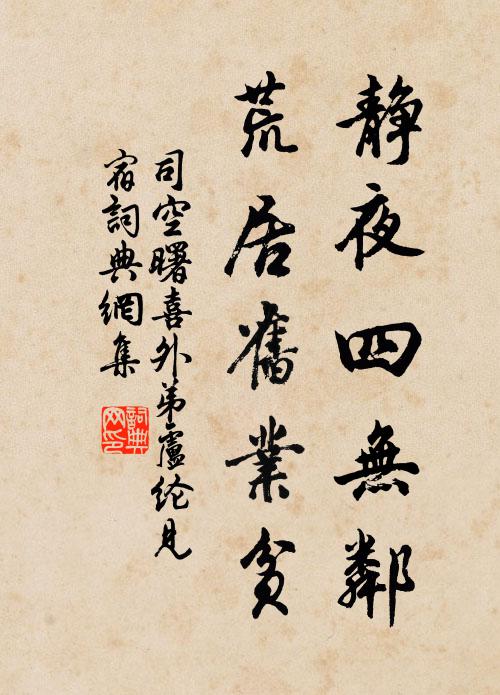 静夜四無鄰
荒居舊業貧
司空曙喜外弟盧綸見
宿詞典網集
詞典
网印